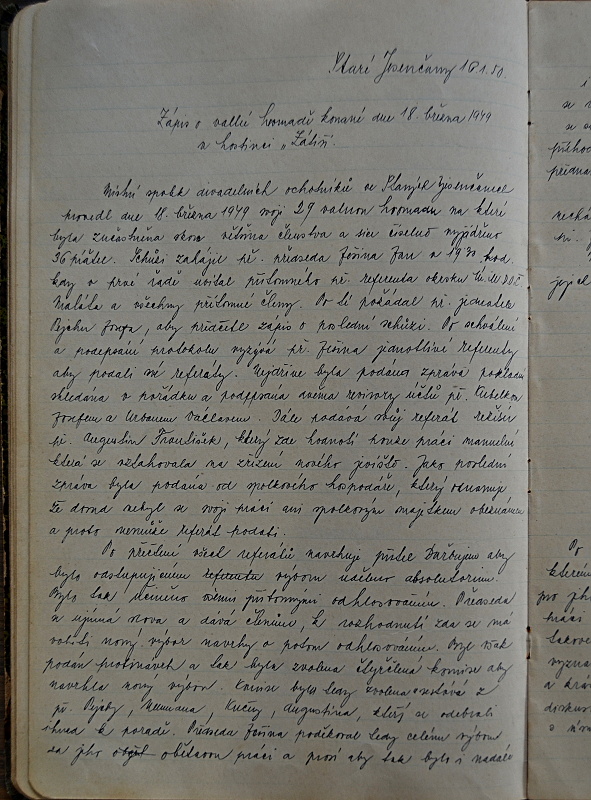 Staré Jesenčany 16.1.50.
Zápis o valné hromadě konané dne 18. března 1949
v hostinci „Zátiší".
Místní spolek divadelních ochotníků ve Starých Jesenčanech
provedl dne 18. března 1949 svoji 29 valnou hromadu na které
byla zúčastněna skoro většina členstva a sice číselně vyjádřeno
36 přátel. Schůzi zahájil př. předseda Jan v 19 30 hod.
kdy v prvé řadě uvítal přítomného př. referenta okrsku Ú.M.D.O.Č.
Maláta a všechny přítomné členy. Po té požádal př. jednatele
Josefa, aby přečetl zápis o poslední schůzi. Po schválení
a podepsání protokolu vyzývá př. jednotlivé referenty
aby podali své referáty. Nejdříve byla podána zpráva pokladní
shledána v pořádku a podepsána dvěma revisory účtů př. Kubelkou
Josefem a Urbanem Václavem. Dále podává svůj referát režisér
př. Augustin František, který zde hodnotí pouze práci manuelní
která se vztahovala na zřízení nového jeviště. Jako poslední
zpráva byla podána od spolkového hospodáře, který oznamuje
že doma nebyl se svojí prací ani spolkovým majetkem obeznámen
a proto nemůže referát podati.
Po přečtení všech referátů navrhuje přítel aby
bylo odstupujícímu referentu výboru uděleno absolutorium.
Bylo tak učiněno všemi přítomnými odhlasováním. Předseda
se ujímá slova a dává členům, k rozhodnutí zda se má
voliti nový výbor navrhy a potom odhlasováním. Byl však
podán protinávrh a tak byla zvolena čtyřčlená komise aby
navrhla nový výbor. Komise byla tedy zvolena sestává z
př. Neumana, Kučery, Augustina, kteří se odebrali
ihned k poradě. Předseda poděkoval tedy celému výboru
za jeho obětavou práci a prosí aby tak bylo i nadále